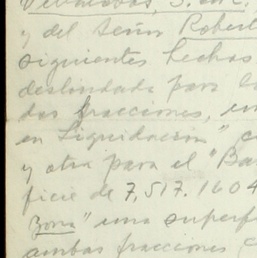 y del Señor Robert
siguientes hechas
deslindada para l
das fracciones, un
en Liquidación" c
y otra para el "Ba
ficie de 7,517.1604
Bona" una superf
ambas fracciones c